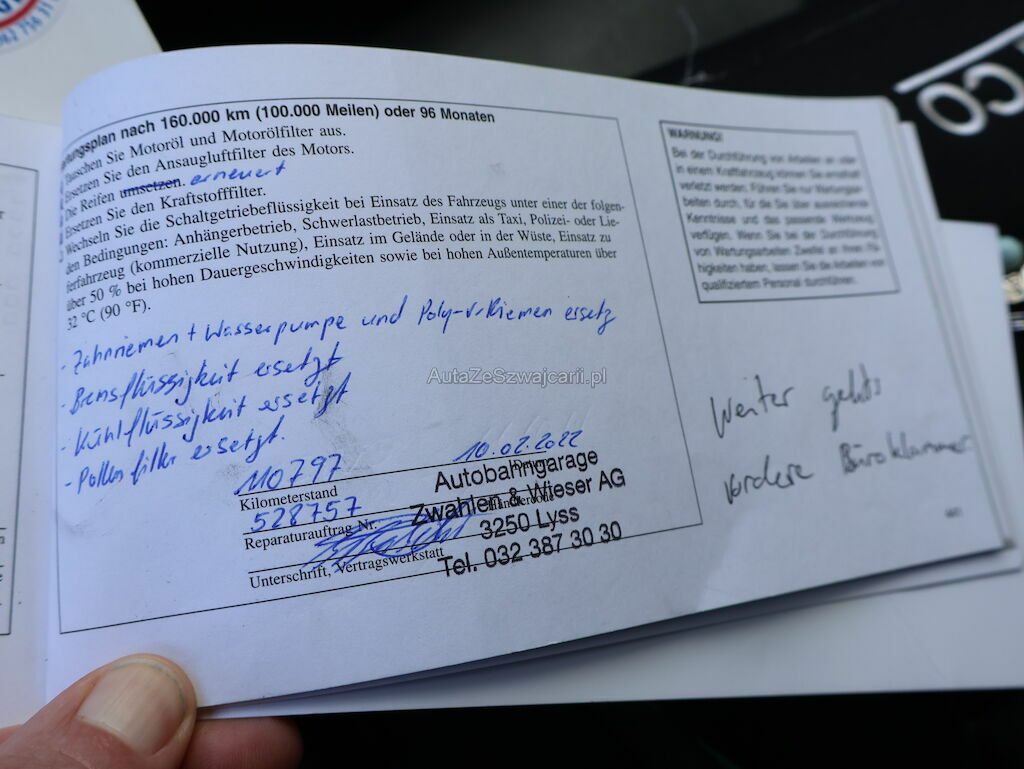 rtungsplan nach 160.000 km (100.000 Meilen) oder 96 Monaten
Tauschen Sie Motoröl und Motorölfilter aus.
Ersetzen Sie den Ansaugluftfilter des Motors.
Die Reifen umsetzen. erneuert
Ersetzen Sie den Kraftstofffilter.
Wechseln Sie die Schaltgetriebeflüssigkeit bei Einsatz des Fahrzeugs unter einer der folgen-
den Bedingungen: Anhängerbetrieb, Schwerlastbetrieb, Einsatz als Taxi, Polizei- oder Lie-
ferfahrzeug (kommerzielle Nutzung), Einsatz im Gelände oder in der Wüste, Einsatz zu
über 50 % bei hohen Dauergeschwindigkeiten sowie bei hohen Außentemperaturen über
32 °C (90 °F).
- Zahnriemen + Wasserpumpe und Poly-V-Riemen ersetz
- Bremsflüssigkeit ersetzt
- Kühlflüssigkeit ersetzt
- Pollenfilter ersetzt.
110797 10.02.2022
Kilometerstand
528757
Reparaturauftrag Nr.
Unterschrift, Vertragswerkstatt
Autobahngarage
Zwahlen & Wieser AG
3250 Lyss
Tel. 032 387 30 30
WARNUNG!
Bei der Durchführung von Arbeiten an oder
in einem Kraftfahrzeug können Sie ernsthaft
verletzt werden. Führen Sie nur Wartungsar-
beiten durch, für die Sie über ausreichende
Kenntnisse und das passende Werkzeug
verfügen. Wenn Sie bei der Durchführung
von Wartungsarbeiten Zweifel an Ihren Fä-
higkeiten haben, lassen Sie die Arbeiten von
qualifiziertem Personal durchführen.
Weiter gehts
vordere Büroklammer
AutaZeSzwajcarii.pl